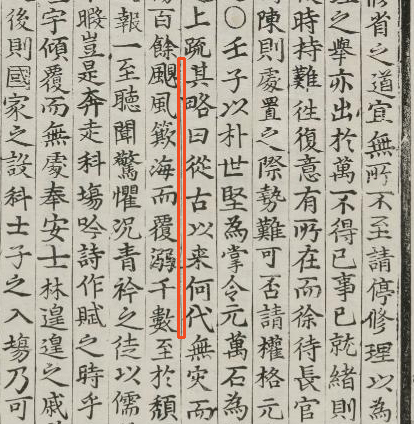 省之道宜無所不至請停修理以為
之舉亦出於萬不得已事已就緒則
時持難徃復意有所在而徐待長官
陳則處置之際勢難可否請權格元
○壬子以朴世堅為掌令元萬石為
上疏其略曰從古以来何代無灾而
百餘颶風欶海而覆溺千數至於頹
報一至聽聞驚懼况青衿之徒以儒
暇豈是奔走科場吟詩作賦之時乎
字傾覆而無處奉安士林遑遑之戚
後則國家之設科士子之入場乃可